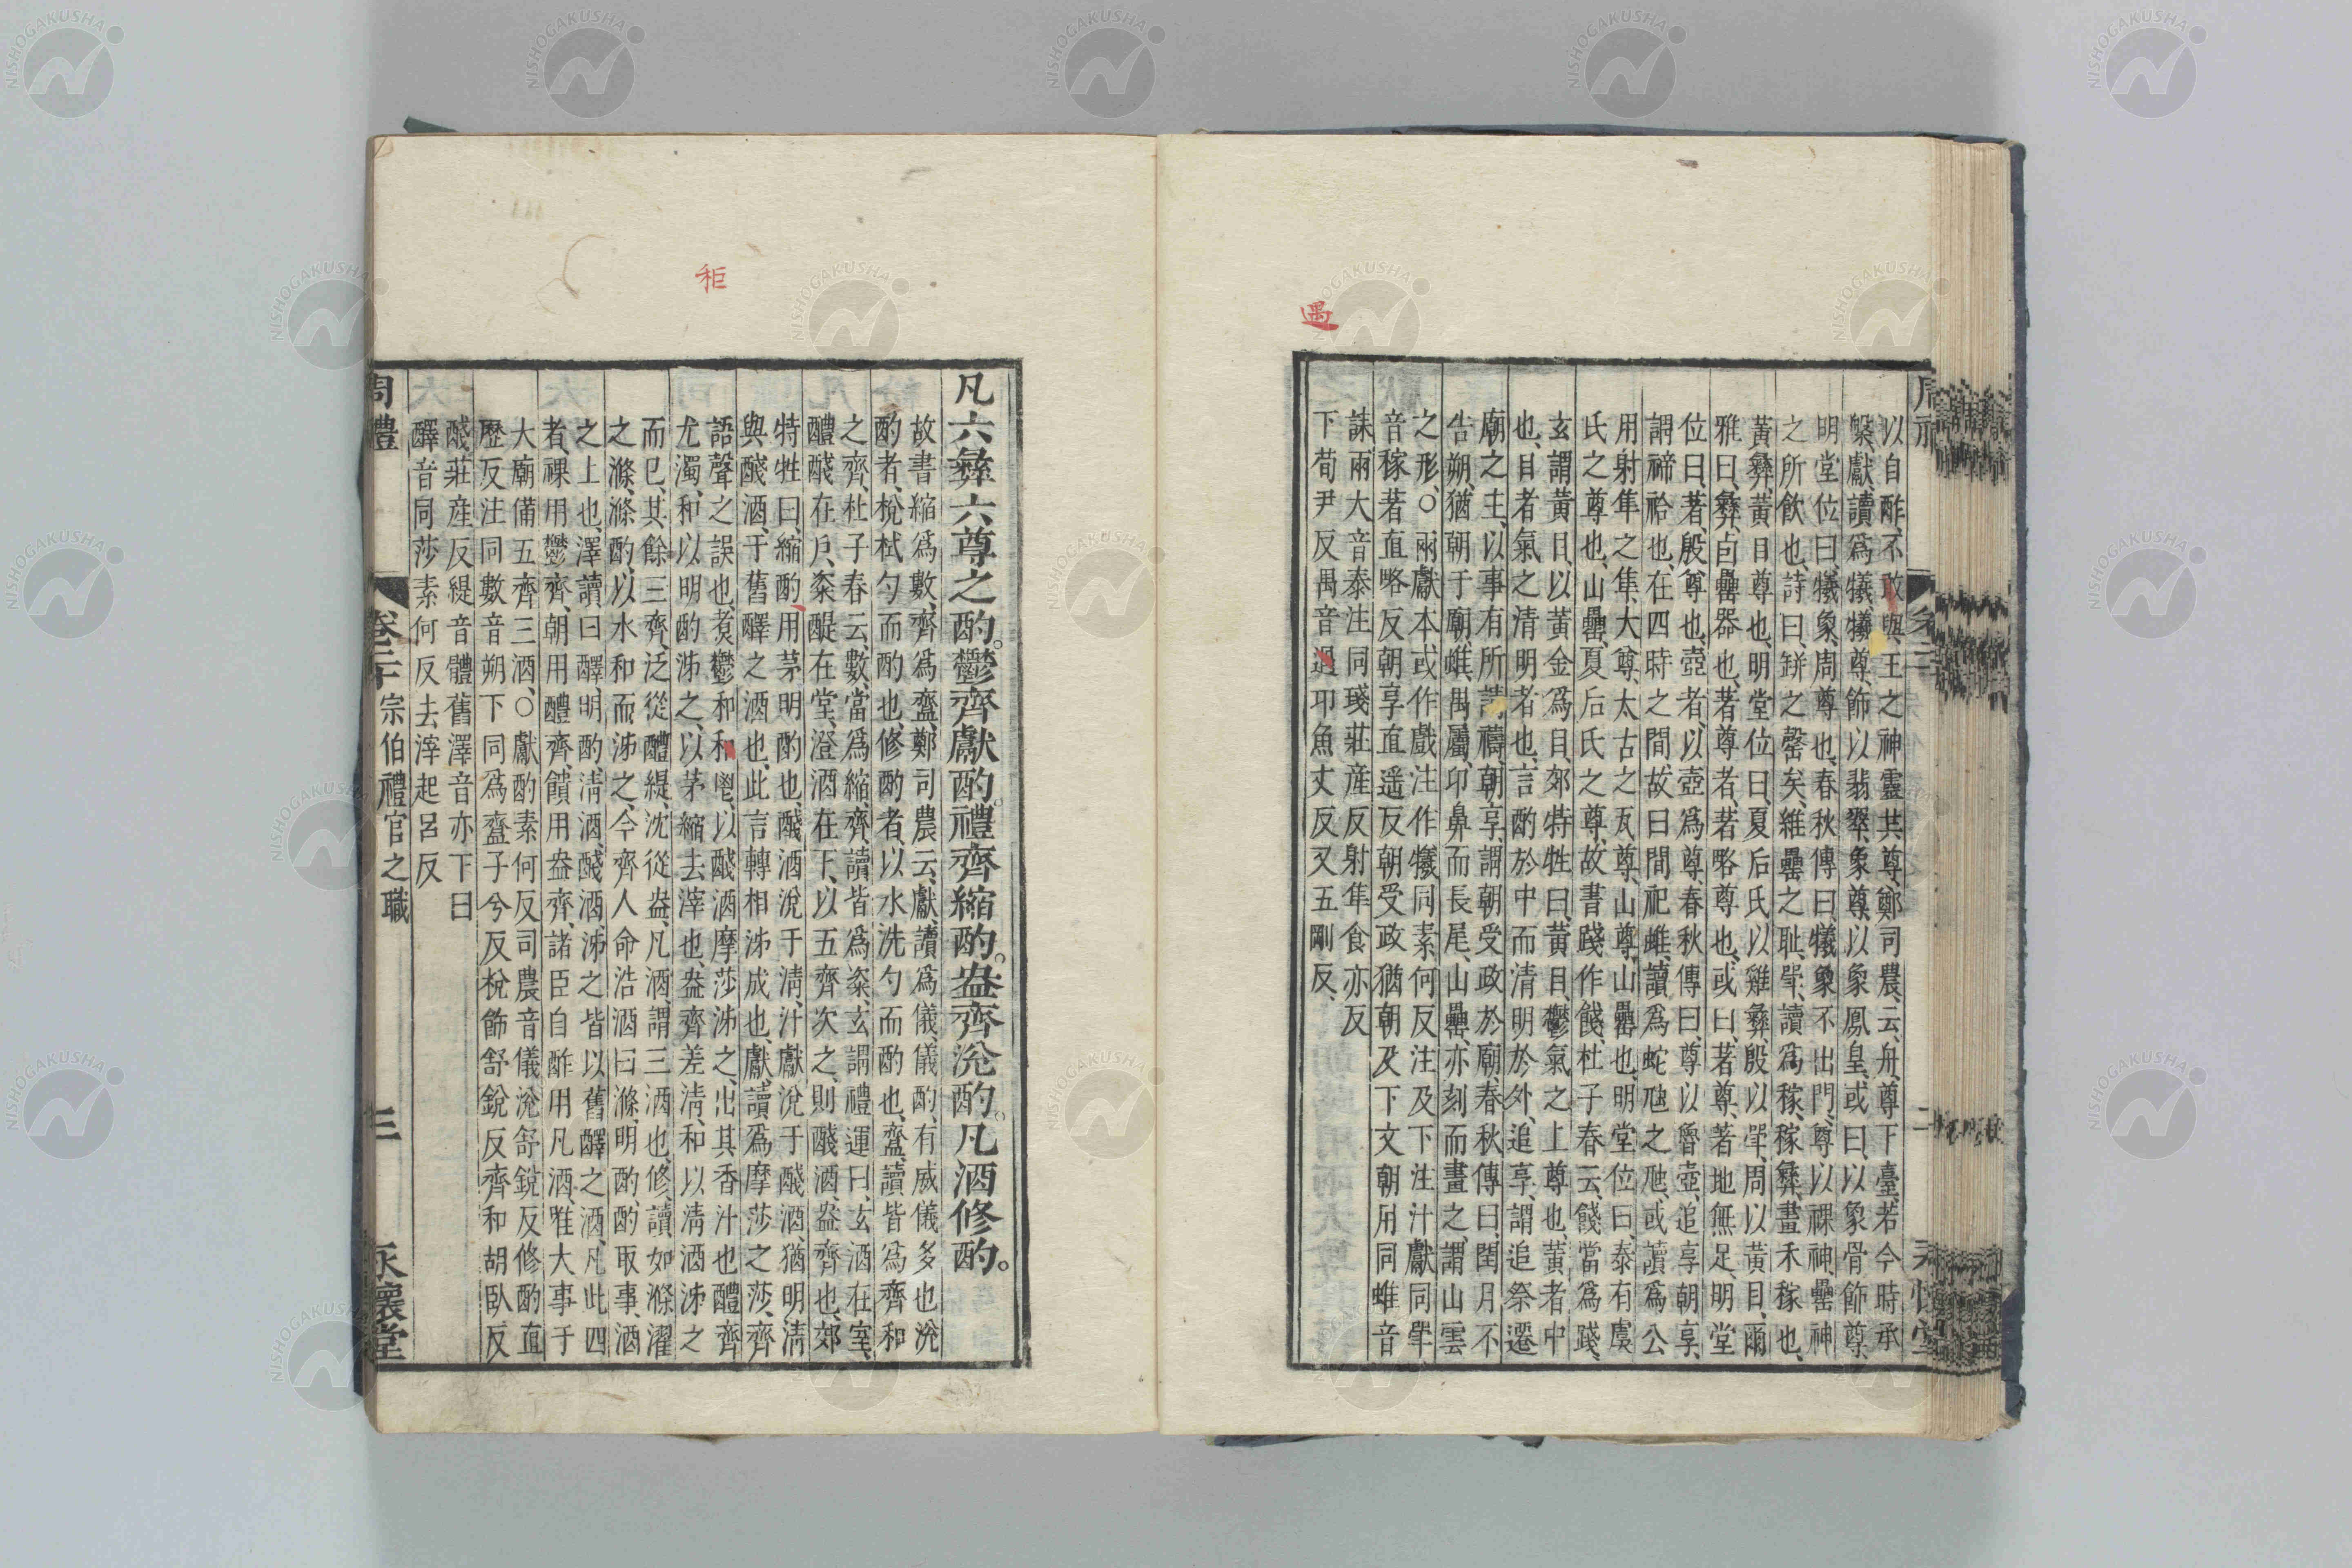 遇
以自酢不敢與王之神靈共尊鄭司農云舟尊下臺若今時承
槃獻讀爲犧犧尊飾以翡翠象尊以象鳳皇或曰以象骨飾尊
明堂位曰犧象周尊也春秋傳曰犧象不出門尊以祼神罍神
之所飲也詩曰缾之罄矣維罍之耻斝讀爲稼稼彝畫禾稼也
黃彝黃目尊也明堂位曰夏后氏以雞彝殷以斝周以黃目爾
雅曰彝卣罍器也著尊者著略尊也或曰著尊著地無足明堂
位曰著殷尊也壺者以壺爲尊春秋傳曰尊以魯壺追享朝享
謂禘祫也在四時之間故曰間祀蜼讀爲蛇虺之虺或讀爲公
用射隼之隼大尊太古之瓦尊山尊山罍也明堂位曰泰有虞
氏之尊也山罍夏后氏之尊故書踐作餞杜子春云餞當爲踐
玄謂黃目以黃金爲目郊特牲曰黃目鬱氣之上尊也黃者中
也目者氣之清明者也言酌於中而清明於外追享謂追祭遷
廟之主以事有所請禱朝享謂朝受政於廟春秋傳曰閏月不
告朔猶朝于廟蜼禺屬卬鼻而長尾山罍亦刻而畫之謂山雲
之形○兩獻本或作戲注作犧同素何反注及下注汁獻同斝
音稼著直略反朝享直遥反朝受政猶朝及下文朝用同蜼音
誄兩大音泰注同琖莊産反射隼食亦反
下荀尹反禺音遇卬魚丈反又五剛反
秬
凡六彝六尊之酌。鬱齊獻酌。禮齊縮酌。盎齊涗酌。凡酒修酌。
故書縮爲數齊爲齍鄭司農云獻讀爲儀儀酌有威儀多也涗
酌者梲拭勺而酌也修酌者以水洗勺而酌也齍讀皆爲齊和
之齊杜子春云數當爲縮齊讀皆爲粢玄謂禮運曰玄酒在室
醴醆在戶粢醍在堂澄酒在下以五齊次之則醆酒盎齊也郊
特牲曰縮酌用茅明酌也醆酒涗于清汁獻涗于醆酒猶明清
與醆酒于舊醳之酒也此言轉相泲成也獻讀爲摩莎之莎齊
語聲之誤也煑鬱和和鬯以醆酒摩莎泲之出其香汁也醴齊
尤濁和以明酌泲之以茅縮去滓也盎齊差清和以清酒泲之
而已其餘三齊泛從醴緹沈從盎凡酒謂三酒也修讀如滌濯
之滌滌酌以水和而泲之今齊人命浩酒曰滌明酌酌取事酒
之上也澤讀曰醳明酌清酒醆酒泲之皆以舊醳之酒凡此四
者祼用鬱齊朝用醴齊饋用盎齊諸臣自酢用凡酒唯大事于
大廟備五齊三酒○獻酌素何反司農音儀涗舒銳反修酌直
歷反注同數音朔下同爲齍子兮反梲飾舒銳反齊和胡臥反
醆莊産反緹音體舊澤音亦下曰
醳音同莎素何反去滓起呂反
周禮 卷二十 宗伯禮官之職 三 永懷堂